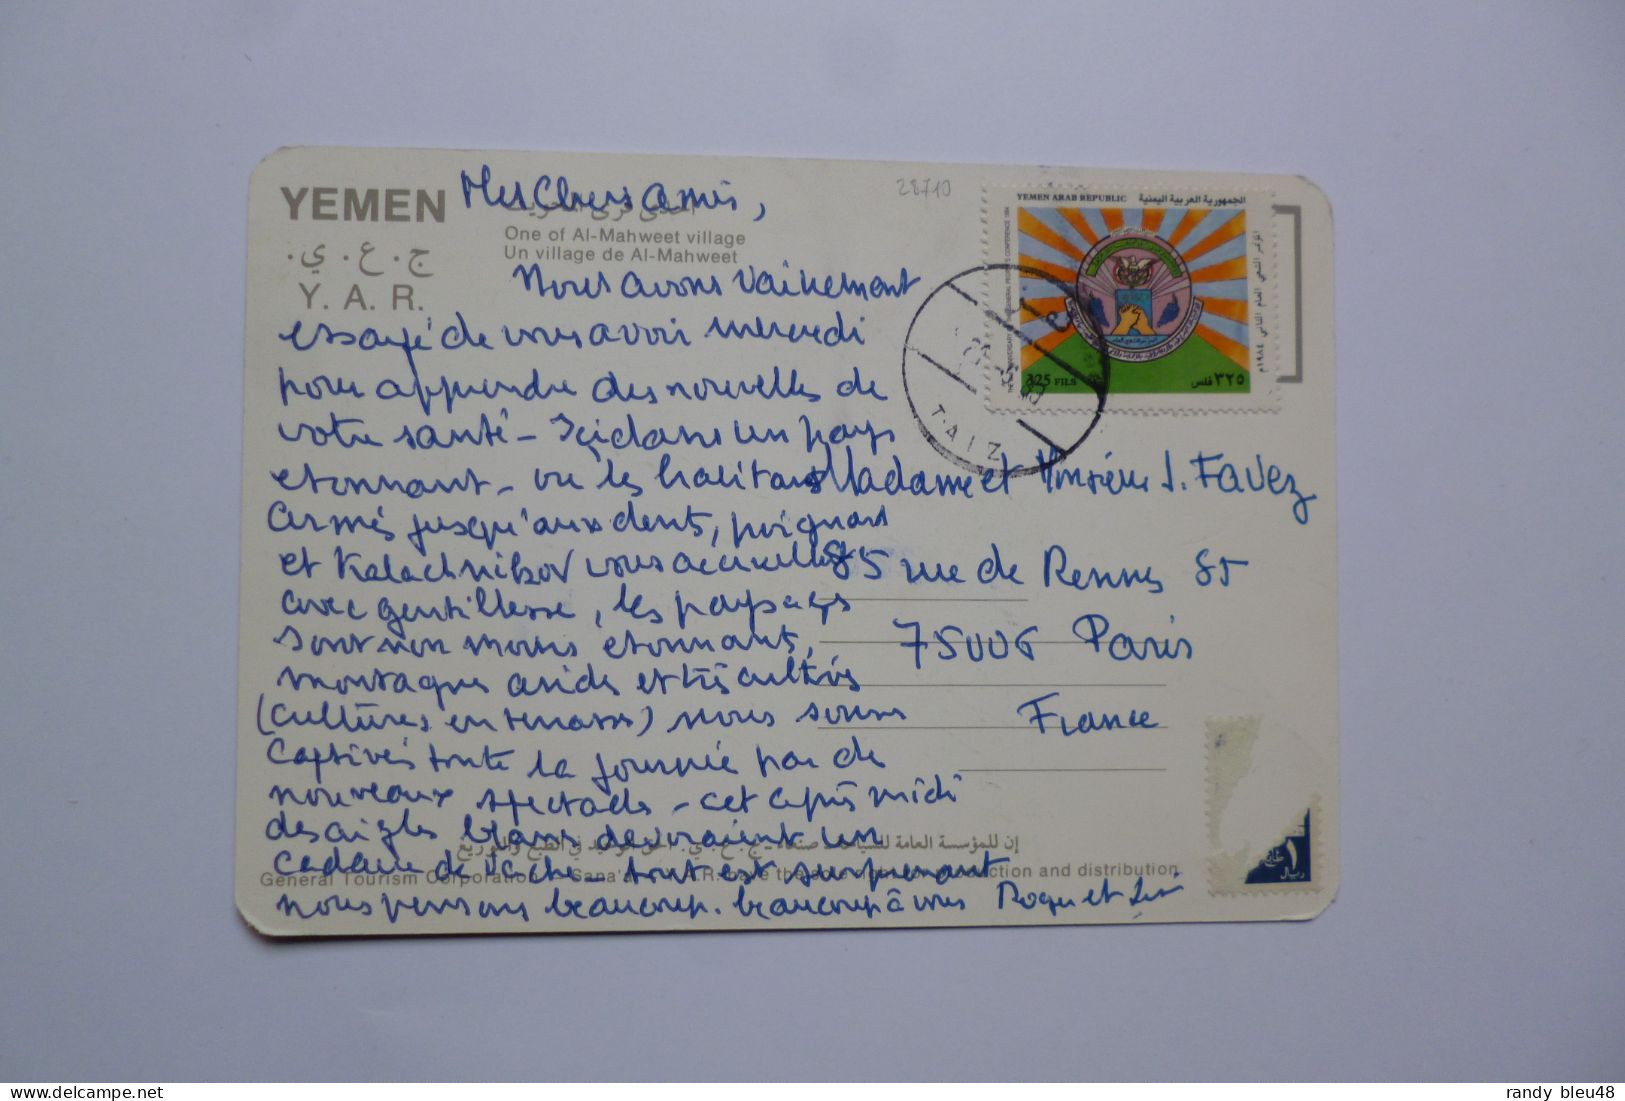 YEMEN
ج.ع.ي.
Y. A. R.
One of Al-Mahweet village
Un village de Al-Mahweet
28710
YEMEN ARAB REPUBLIC الجمهورية العربية اليمنية
325 FILS ٣٢٥ فلس
TAIZ
Mes Chers amis,
Nous avons vainement
essayé de vous avoir mercredi
pour apprendre des nouvelles de
votre santé - Ici dans un pays
etonnant - où les habitants
armés jusqu'aux dents, poignard
et Kalachnikov vous accueillent
avec gentillesse, les paysages
sont non moins etonnants,
montagnes arides et très cultivés
(cultures en terrasses) nous sommes
captivés toute la journée par de
nouveaux spectacles - cet après midi
des aigles blancs devoraient un
cadavre de vache - tout est surprenant
nous pensons beaucoup. beaucoup à vous Roger et
Madame et Monsieur J. FAVEZ
85 rue de Rennes 85
75006 Paris
France
General Tourism Corporation Sana'a the production and distribution
randy bleu48